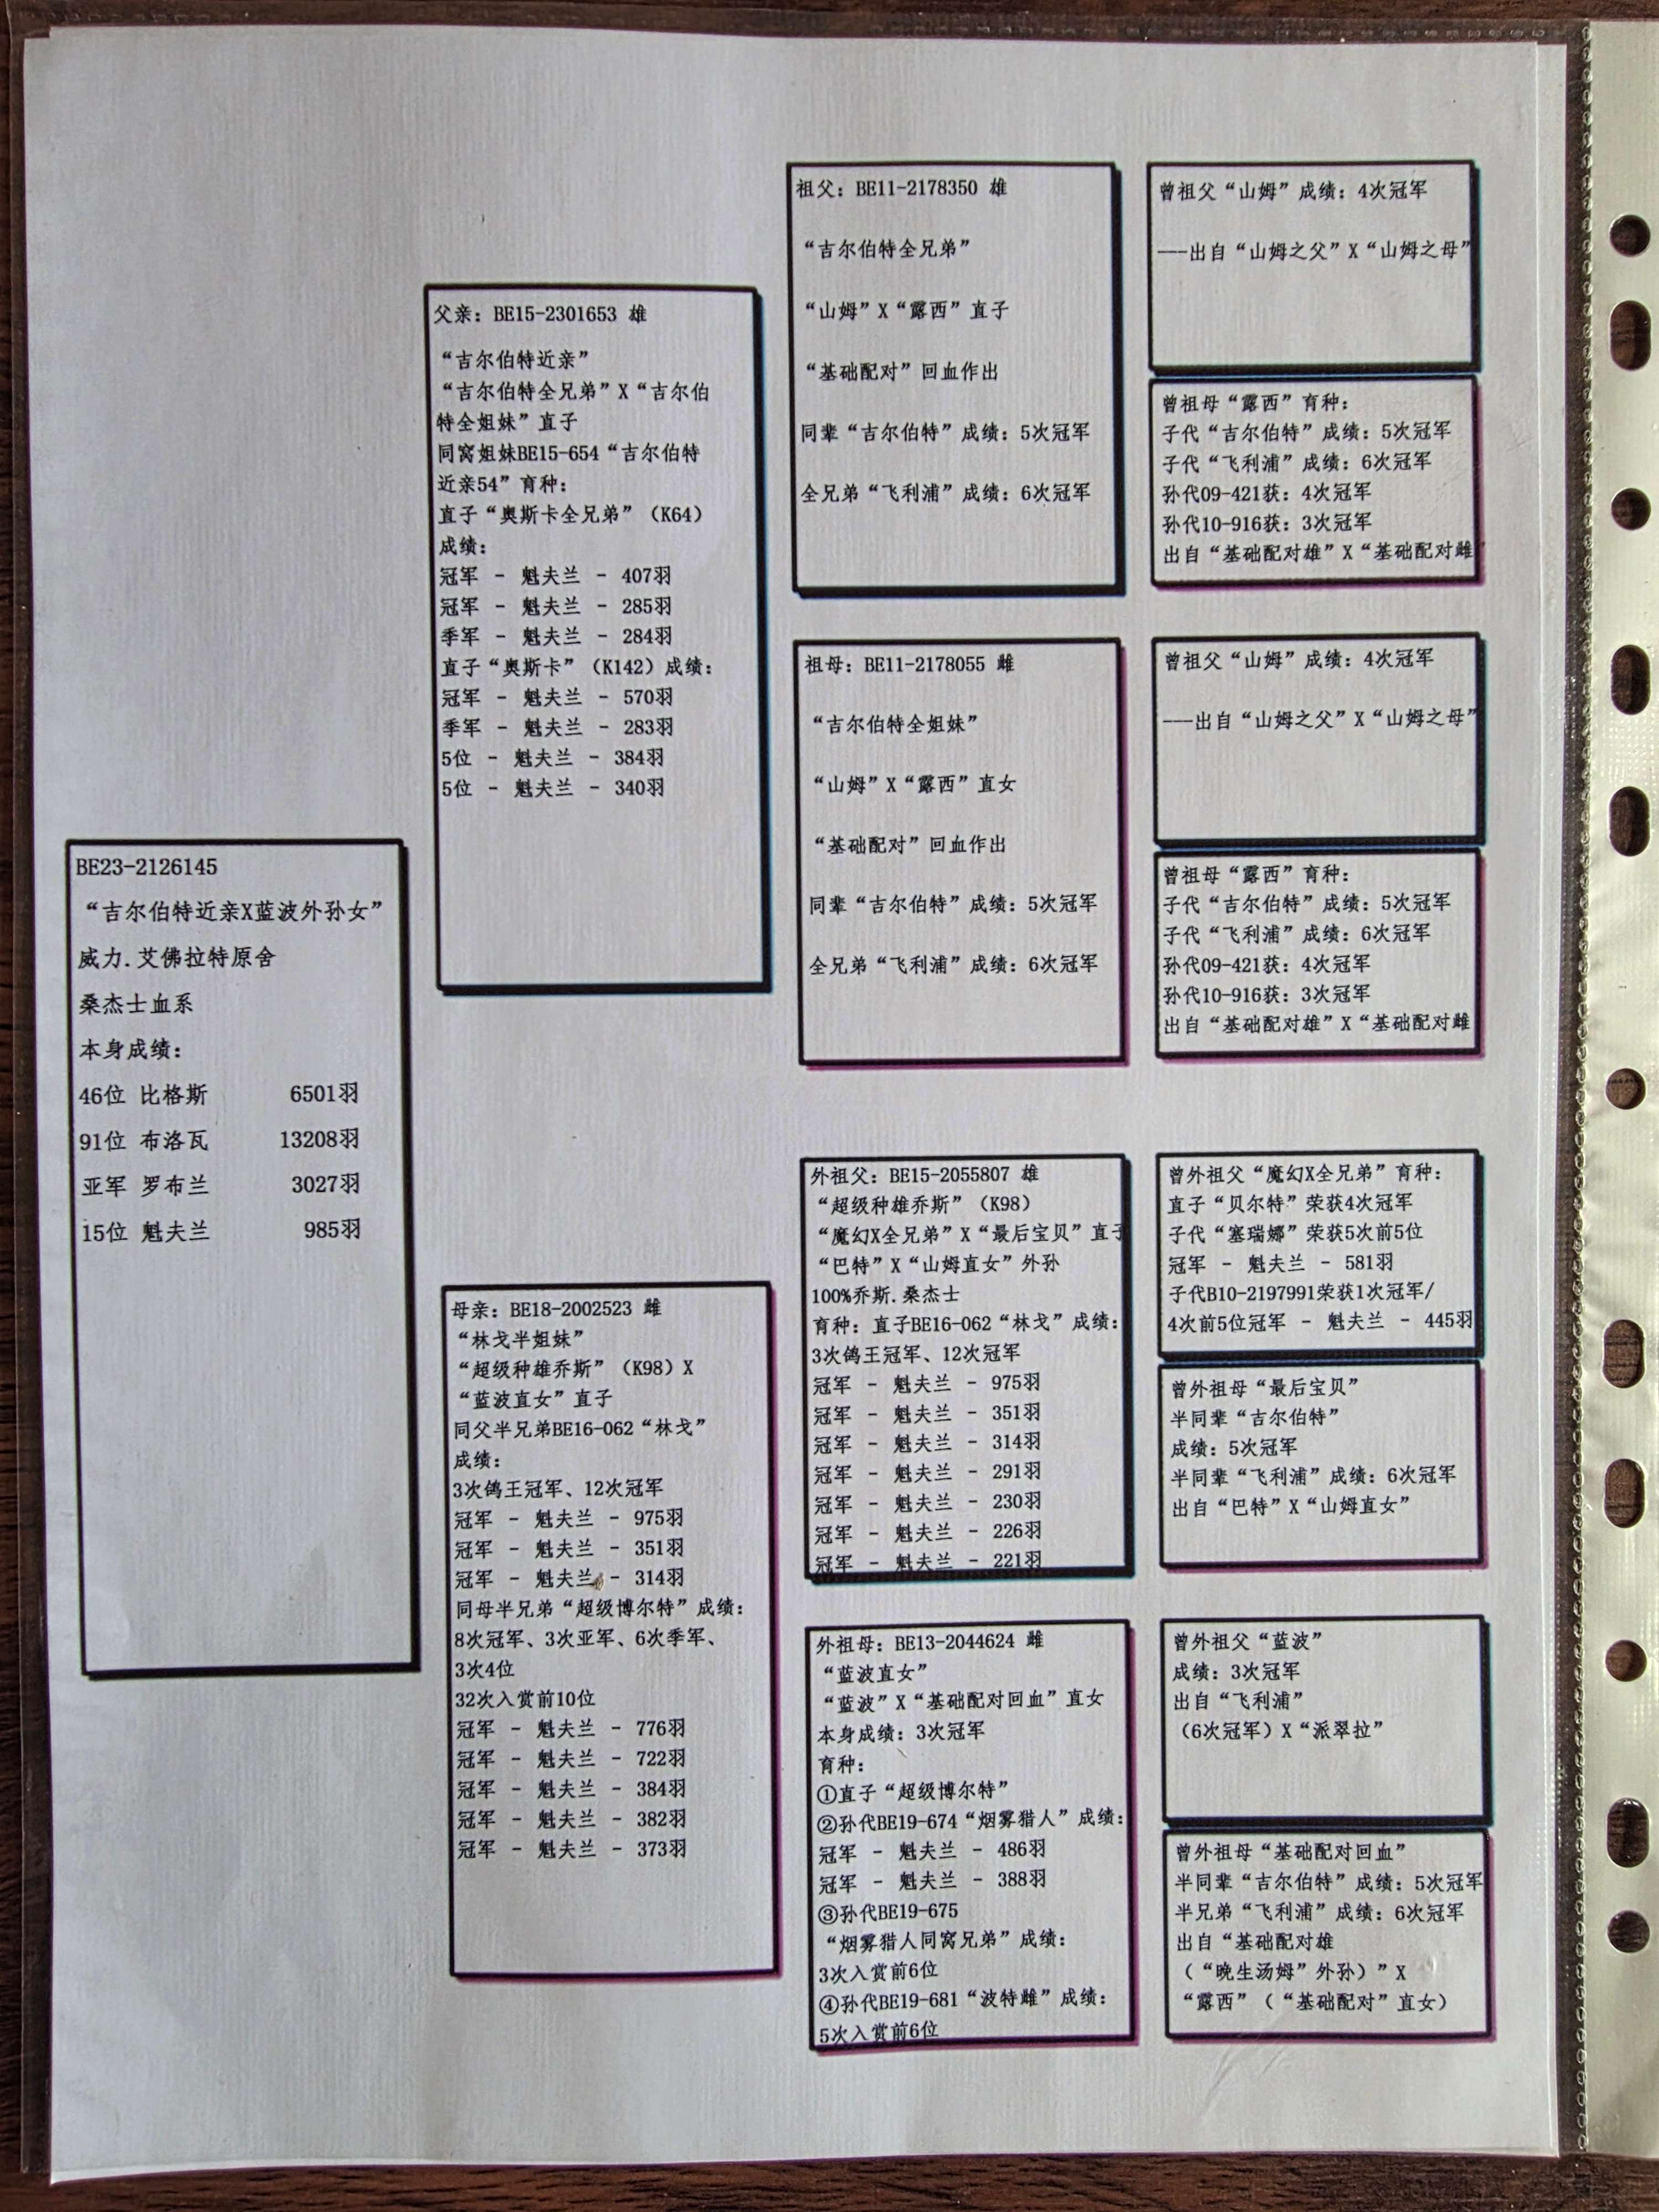 BE23-2126145
“吉尔伯特近亲X蓝波外孙女”
威力.艾佛拉特原舍
桑杰士血系
本身成绩：
46位 比格斯 6501羽
91位 布洛瓦 13208羽
亚军 罗布兰 3027羽
15位 魁夫兰 985羽
父亲：BE15-2301653 雄
“吉尔伯特近亲”
“吉尔伯特全兄弟”X“吉尔伯
特全姐妹”直子
同窝姐妹BE15-654“吉尔伯特
近亲54”育种：
直子“奥斯卡全兄弟”（K64）
成绩：
冠军 - 魁夫兰 - 407羽
冠军 - 魁夫兰 - 285羽
季军 - 魁夫兰 - 284羽
直子“奥斯卡”（K142）成绩：
冠军 - 魁夫兰 - 570羽
季军 - 魁夫兰 - 283羽
5位 - 魁夫兰 - 384羽
5位 - 魁夫兰 - 340羽
母亲：BE18-2002523 雌
“林戈半姐妹”
“超级种雄乔斯”（K98）X
“蓝波直女”直子
同父半兄弟BE16-062“林戈”
成绩：
3次鸽王冠军、12次冠军
冠军 - 魁夫兰 - 975羽
冠军 - 魁夫兰 - 351羽
冠军 - 魁夫兰 - 314羽
同母半兄弟“超级博尔特”成绩：
8次冠军、3次亚军、6次季军、
3次4位
32次入赏前10位
冠军 - 魁夫兰 - 776羽
冠军 - 魁夫兰 - 722羽
冠军 - 魁夫兰 - 384羽
冠军 - 魁夫兰 - 382羽
冠军 - 魁夫兰 - 373羽
祖父：BE11-2178350 雄
“吉尔伯特全兄弟”
“山姆”X“露西”直子
“基础配对”回血作出
同辈“吉尔伯特”成绩：5次冠军
全兄弟“飞利浦”成绩：6次冠军
祖母：BE11-2178055 雌
“吉尔伯特全姐妹”
“山姆”X“露西”直女
“基础配对”回血作出
同辈“吉尔伯特”成绩：5次冠军
全兄弟“飞利浦”成绩：6次冠军
外祖父：BE15-2055807 雄
“超级种雄乔斯”（K98）
“魔幻X全兄弟”X“最后宝贝”直子
“巴特”X“山姆直女”外孙
100%乔斯.桑杰士
育种：直子BE16-062“林戈”成绩：
3次鸽王冠军、12次冠军
冠军 - 魁夫兰 - 975羽
冠军 - 魁夫兰 - 351羽
冠军 - 魁夫兰 - 314羽
冠军 - 魁夫兰 - 291羽
冠军 - 魁夫兰 - 230羽
冠军 - 魁夫兰 - 226羽
冠军 - 魁夫兰 - 221羽
外祖母：BE13-2044624 雌
“蓝波直女”
“蓝波”X“基础配对回血”直女
本身成绩：3次冠军
育种：
①直子“超级博尔特”
②孙代BE19-674“烟雾猎人”成绩：
冠军 - 魁夫兰 - 486羽
冠军 - 魁夫兰 - 388羽
③孙代BE19-675
“烟雾猎人同窝兄弟”成绩：
3次入赏前6位
④孙代BE19-681“波特雌”成绩：
5次入赏前6位
曾祖父“山姆”成绩：4次冠军
---出自“山姆之父”X“山姆之母”
曾祖母“露西”育种：
子代“吉尔伯特”成绩：5次冠军
子代“飞利浦”成绩：6次冠军
孙代09-421获：4次冠军
孙代10-916获：3次冠军
出自“基础配对雄”X“基础配对雌”
曾祖父“山姆”成绩：4次冠军
---出自“山姆之父”X“山姆之母”
曾祖母“露西”育种：
子代“吉尔伯特”成绩：5次冠军
子代“飞利浦”成绩：6次冠军
孙代09-421获：4次冠军
孙代10-916获：3次冠军
出自“基础配对雄”X“基础配对雌
曾外祖父“魔幻X全兄弟”育种：
直子“贝尔特”荣获4次冠军
子代“塞瑞娜”荣获5次前5位
冠军 - 魁夫兰 - 581羽
子代B10-2197991荣获1次冠军/
4次前5位冠军 - 魁夫兰 - 445羽
曾外祖母“最后宝贝”
半同辈“吉尔伯特”
成绩：5次冠军
半同辈“飞利浦”成绩：6次冠军
出自“巴特”X“山姆直女”
曾外祖父“蓝波”
成绩：3次冠军
出自“飞利浦”
（6次冠军）X“派翠拉”
曾外祖母“基础配对回血”
半同辈“吉尔伯特”成绩：5次冠军
半兄弟“飞利浦”成绩：6次冠军
出自“基础配对雄
（“晚生汤姆”外孙）”X
“露西”（“基础配对”直女）